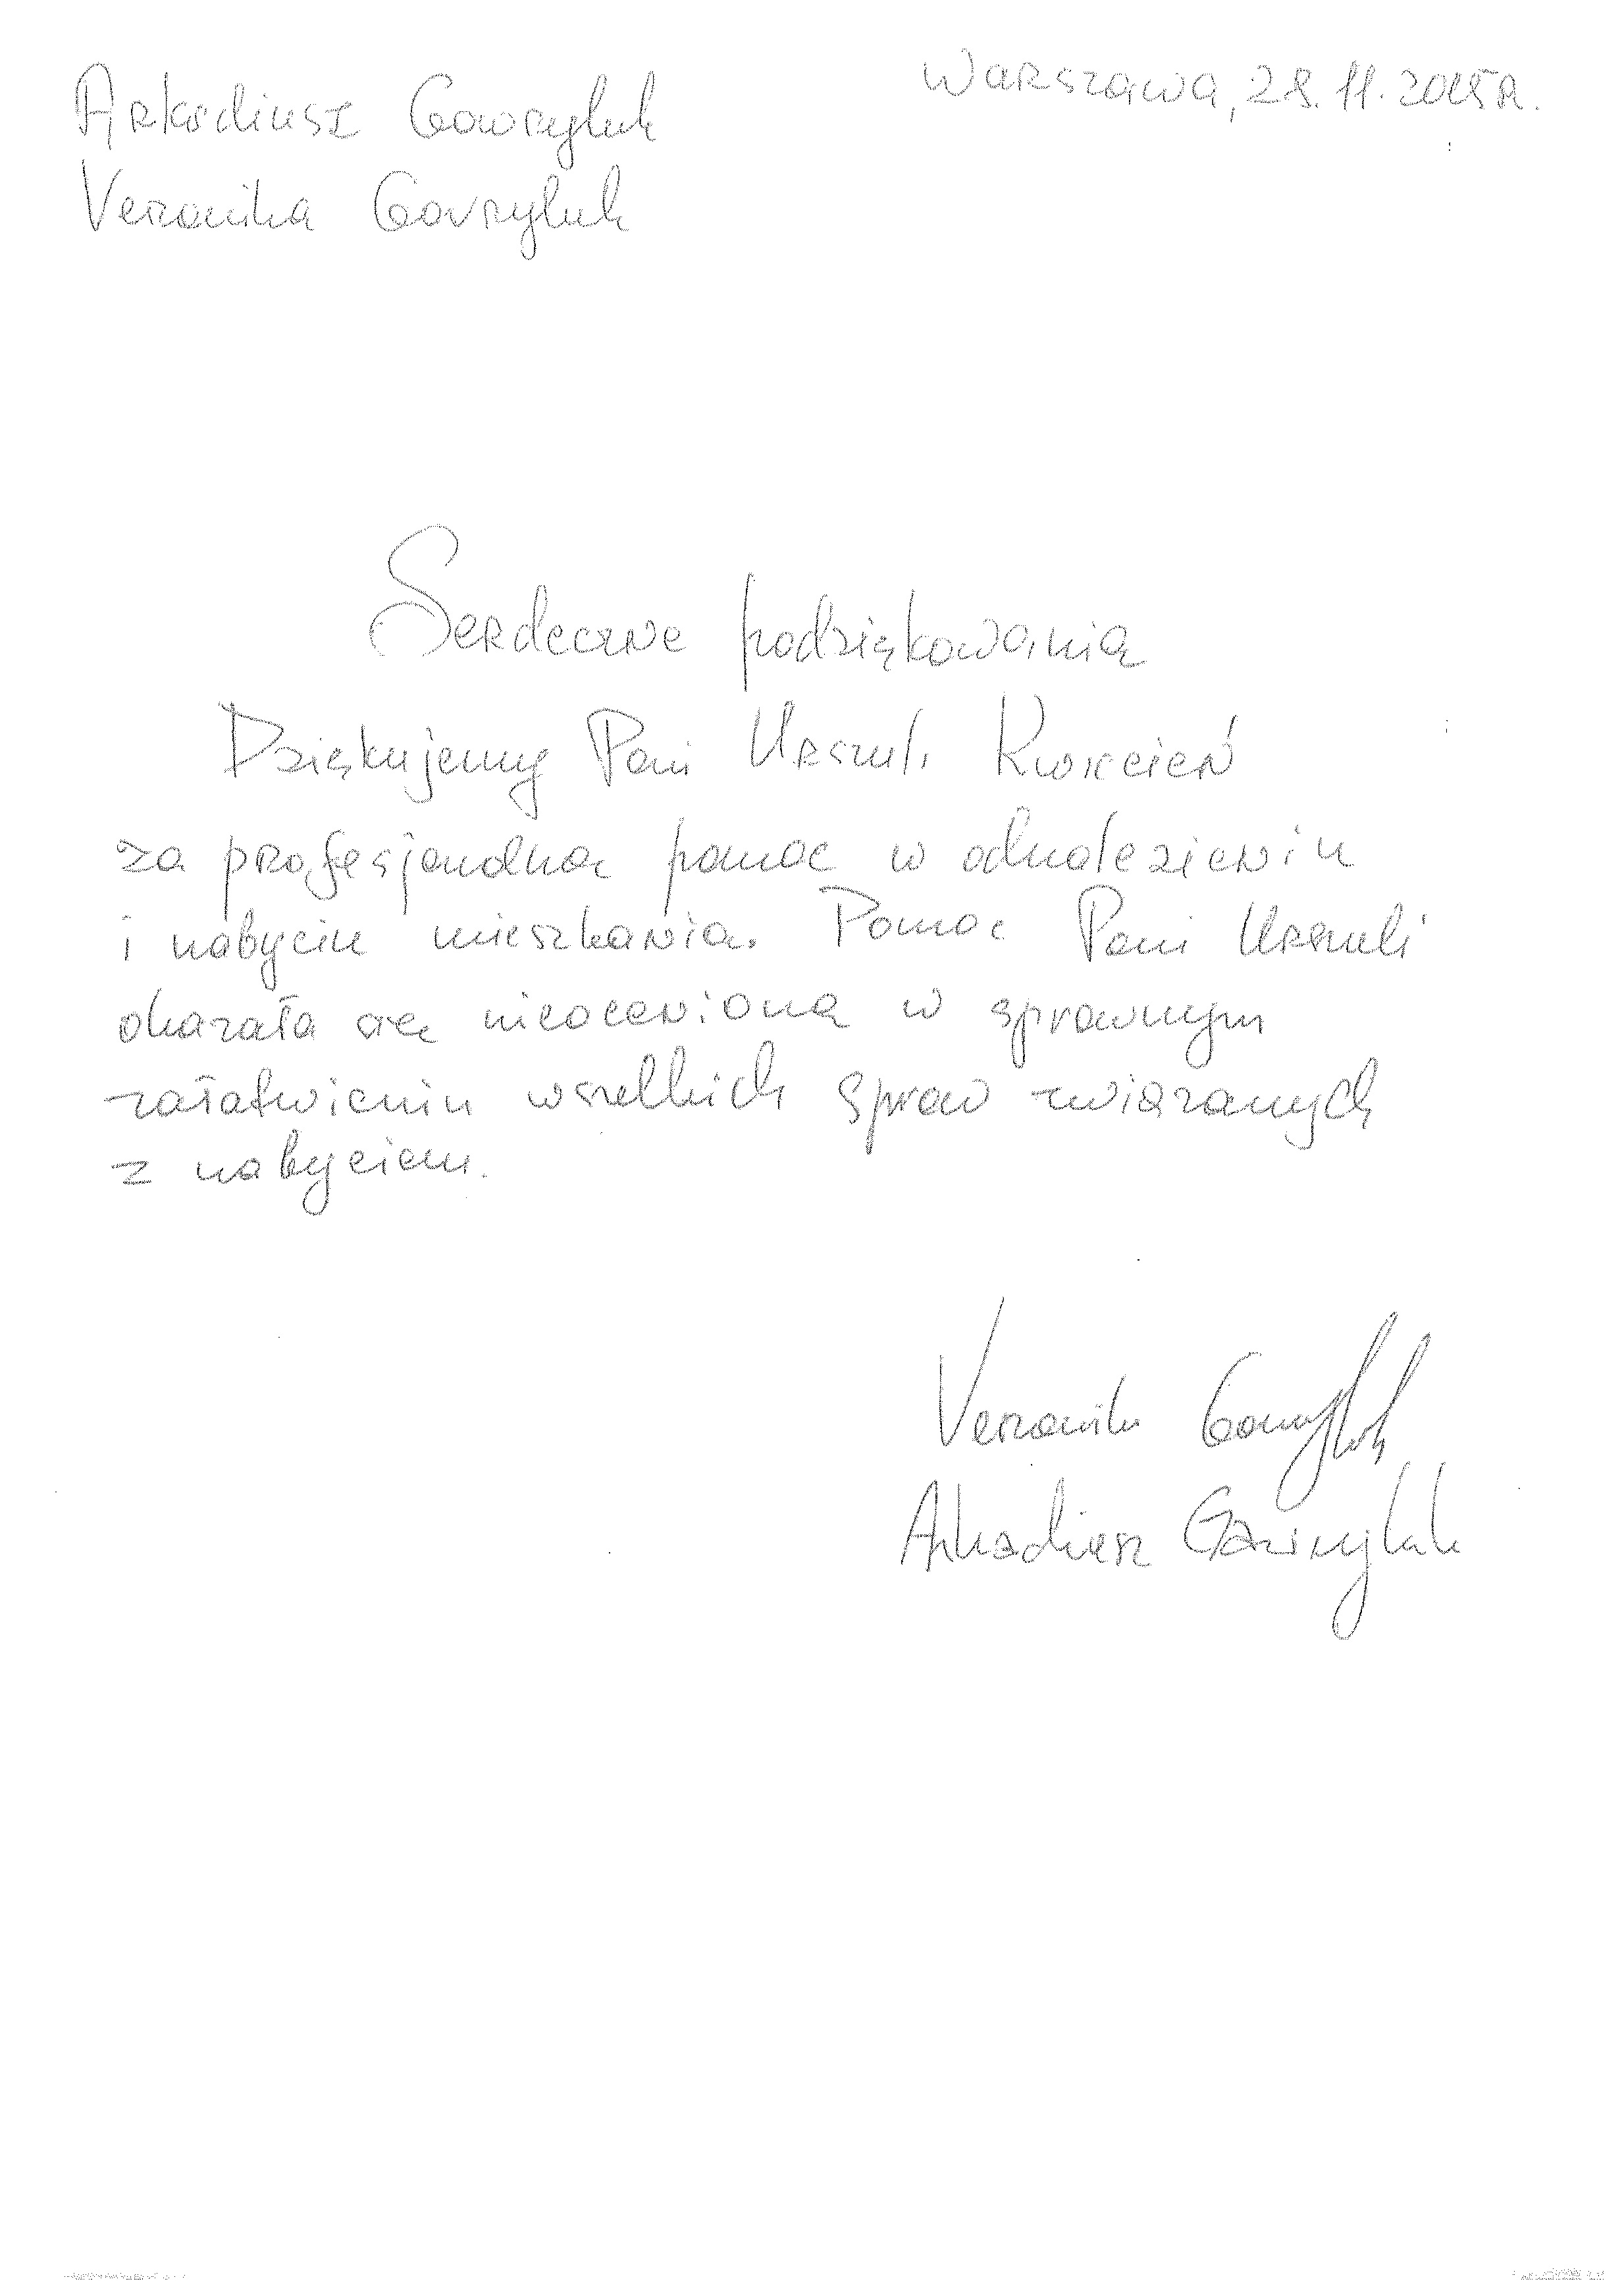 Arkadiusz Gawryluk
Warszawa, 28.11.2015r.
Veronika Gavryluk
Serdeczne podziękowania
Dziękujemy Pani Urszuli Kwiecień
za profesjonalną pomoc w odnalezieniu
i nabyciu mieszkania. Pomoc Pani Urszuli
okazała się nieoceniona w sprawnym
załatwieniu wszelkich spraw związanych
z nabyciem.
Veronika Gavryluk
Arkadiusz Gawryluk